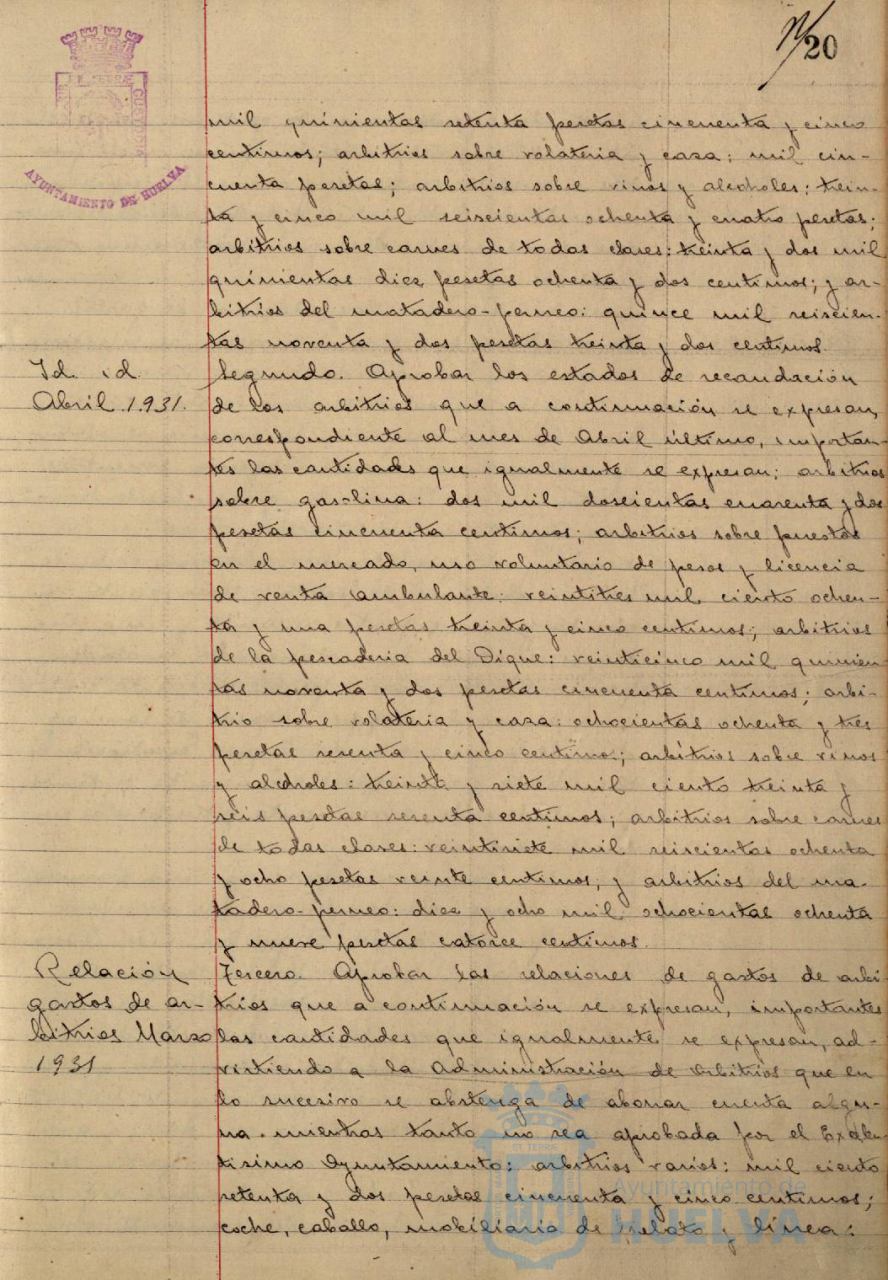 20
AYUNTAMIENTO DE HUELVA
mil quinientas setenta pesetas cincuenta y cinco
centimos; arbitrios sobre volateria y caza: mil cin-
cuenta pesetas; arbitrios sobre vinos y alcoholes: trein-
ta y cinco mil seiscientas ochenta y cuatro pesetas;
arbitrios sobre carnes de todas clases: treinta y dos mil
quinientas diez pesetas ochenta y dos centimos; y ar-
bitrios del matadero-perneo: quince mil seiscien-
tas noventa y dos pesetas treinta y dos centimos.
Id. id.
Abril 1931.
Segundo. Aprobar los estados de recaudación
de los arbitrios que a continuación se expresan,
correspondiente al mes de Abril último, importan-
tes las cantidades que igualmente se expresan: arbitrios
sobre gasolina: dos mil doscientas cuarenta y dos
pesetas cincuenta centimos; arbitrios sobre puestos
en el mercado, uso voluntario de pesos y licencia
de venta ambulante: veintitres mil ciento ochen-
ta y una pesetas treinta y cinco centimos; arbitrios
de la pescaderia del Dique: veinticinco mil quinien-
tas noventa y dos pesetas cincuenta centimos; arbi-
trio sobre volateria y caza: ochocientas ochenta y tres
pesetas sesenta y cinco centimos; arbitrios sobre vinos
y alcoholes: treinta y siete mil ciento treinta y
seis pesetas sesenta centimos; arbitrios sobre carnes
de todas clases: veintisiete mil seiscientas ochenta
y ocho pesetas veinte centimos; y arbitrios del ma-
tadero-perneo: diez y ocho mil ochocientas ochenta
y nueve pesetas catorce centimos.
Relación
gastos de ar-
bitrios Marzo
1931
Tercero. Aprobar las relaciones de gastos de arbi-
trios que a continuación se expresan, importantes
las cantidades que igualmente se expresan, ad-
virtiendo a la Administración de Arbitrios que en
lo sucesivo se abstenga de abonar cuenta algu-
na mientras tanto no sea aprobada por el Excelen-
tisimo Ayuntamiento: arbitrios varios: mil ciento
setenta y dos pesetas cincuenta y cinco centimos;
coche, caballo, mobiliario de y linea:
Ayuntamiento de
HUELVA